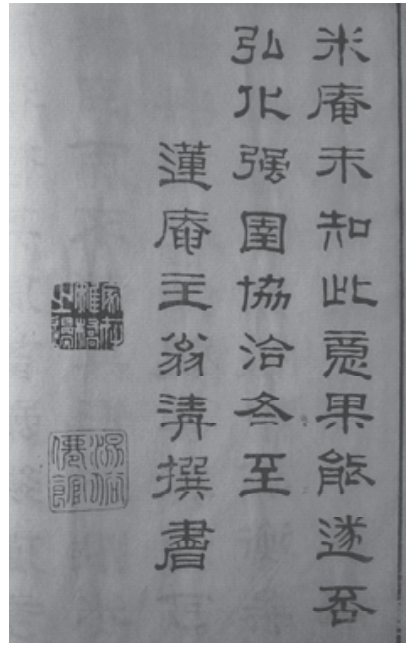 米庵未知此意果能遂否
弘化强圉協洽冬至
蓮庵主翁清撰書